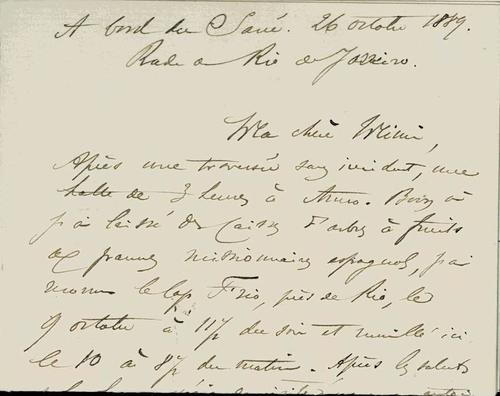 A bord du Sané. 26 octobre 1889.
Rade de Rio de Janeiro.
Ma chère Mimi,
Après une traversée sans incident, une
halte de 3 heures à Anno. Bon où
j'ai laissé des caisses d'arbres à fruits
aux missionnaires espagnols, j'ai
reconnu le cap Frio, près de Rio, le
9 octobre à 11h du soir et mouillé ici
le 10 à 8h du matin. Après les saluts